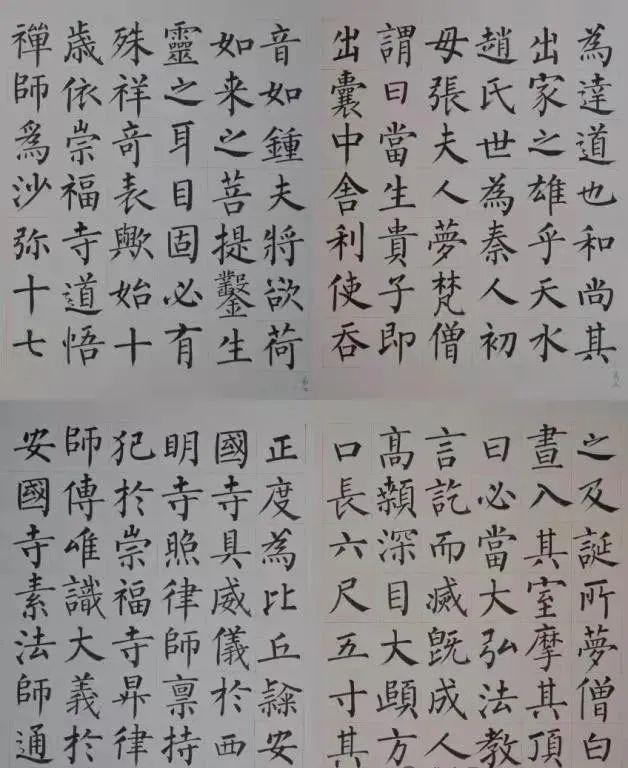 為達道也和尚其
出家之雄乎天水
趙氏世為秦人初
母張夫人夢梵僧
謂曰當生貴子即
出囊中舍利使吞
之及誕所夢僧白
晝入其室摩其頂
曰必當大弘法教
言訖而滅既成人
高顙深目大頤方
口長六尺五寸其
音如鍾夫將欲荷
如来之菩提鑿生
靈之耳目固必有
殊祥竒表歟始十
歳依崇福寺道悟
禪師爲沙弥十七
正度為比丘隸安
國寺具威儀於西
明寺照律師禀持
犯於崇福寺昇律
師傳唯識大義於
安國寺素法師通